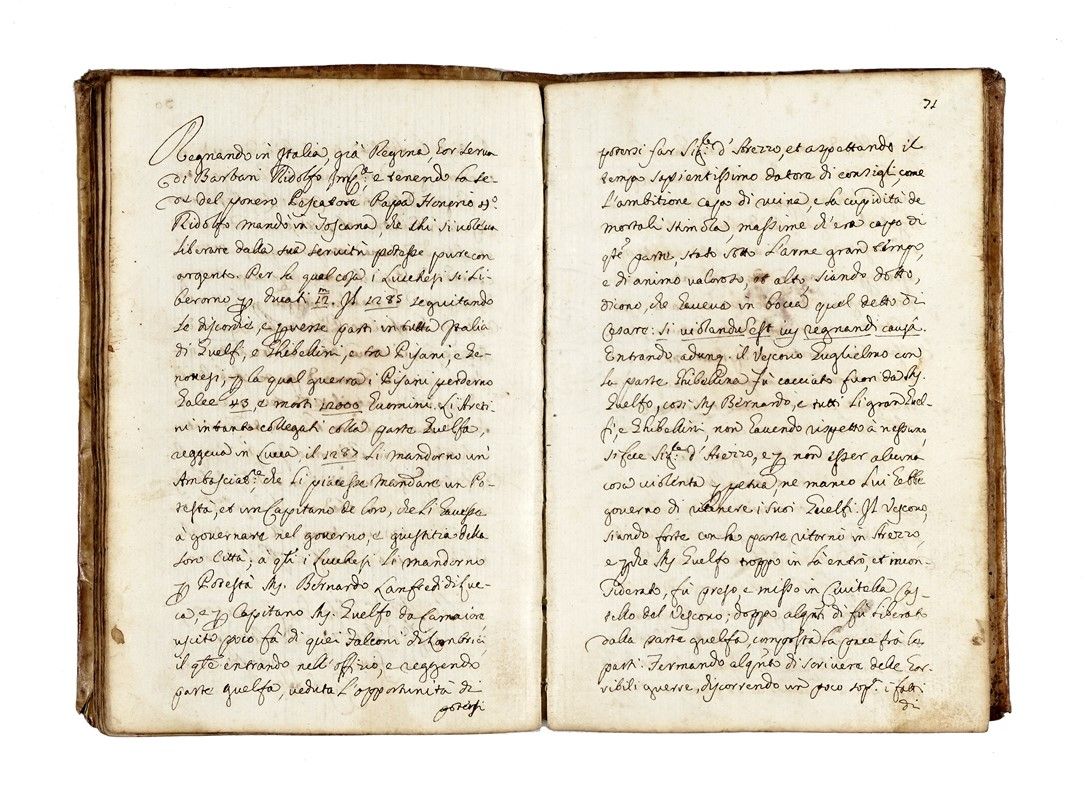 Regnando in Italia, già Regina, hor serua
di Barbari Ridolfo Imp.re e tenendo la se-
de del pouero Pescatore Papa Honorio 4.º
Ridolfo mandò in Toscana, che chi si voleua
liberare dalla sua seruitù potesse pur con
argento. Per la qual cosa i Lucchesi si li-
berorno p ducati 12. Il 1285 seguitando
le discordie, e diuerse parti in tutta Italia
di Guelfi, e Ghibellini, e tra Pisani, e Ge-
nouesi, p la qual guerra i Pisani perderno
Galee 43, e morti 12000 huomini. Li Areti-
ni intanto collegati colla parte Guelfa,
reggeua in Lucca il 1287 Li mandorno un
Ambasciat.re, che li piacesse mandare un Po-
testà, et un Capitano de loro, che li hauesse
à gouernare nel gouerno, e giustitia della
loro Città; à q.sti i Lucchesi li mandorno
p Podestà Mr. Bernardo Lanfredi di Luc-
ca, e p Capitano Mr. Guelfo da Camaiore
uscito poco fà di quei Falconi di Lombrici,
il q.le entrando nell'offizio, e reggendo
parte guelfa, veduta l'opportunità di
potersi
71
potersi far Sig.re d'Arezzo, et aspettando il
tempo sapientissimo datore di consigli, come
l'ambitione capo di ruine, e la cupidità de
mortali stimola, massime ch'era capo di
q.le parte, stato sotto l'arme gran tempo,
e di animo valoroso, et alto, siando dotto,
dicono, che haueua in bocca quel detto di
Cesare: si violandu est ius regnandi causa.
Entrando adunq. il Vescouo Guglielmo con
la parte Ghibellina fù cacciato fuori da Mr.
Guelfo, così Mr. Bernardo, e tutti li grandi Guel-
fi, e Ghibellini, non hauendo rispetto à nessuno,
si fece Sig.re d'Arezzo, e p non esser alcuna
cosa violenta ppetua, ne manco lui hebbe
gouerno di ritenere i suoi Guelfi. Il Vescouo,
siando forte con la parte ritornò in Arezzo,
e pche Mr. Guelfo troppo in là entrò, et incon-
siderato, fù preso, e messo in Ciuitella Cas-
tello del Vescouo; doppo alquãti dì fù liberato
dalla parte guelfa, composta la pace fra le
parti. Fermando alq.to di scriuere delle hor-
ribili guerre, discorrendo un poco sop.a i fatti
di